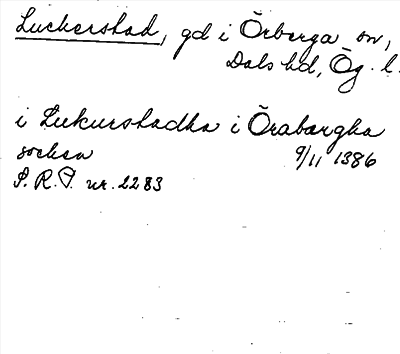 Luckerstad, gd i Örberga sn,
Dals hd, Ög. l.
i Lukurstadha i Örabærgha
sokn 9/11 1386
S. R. P. nr. 2283